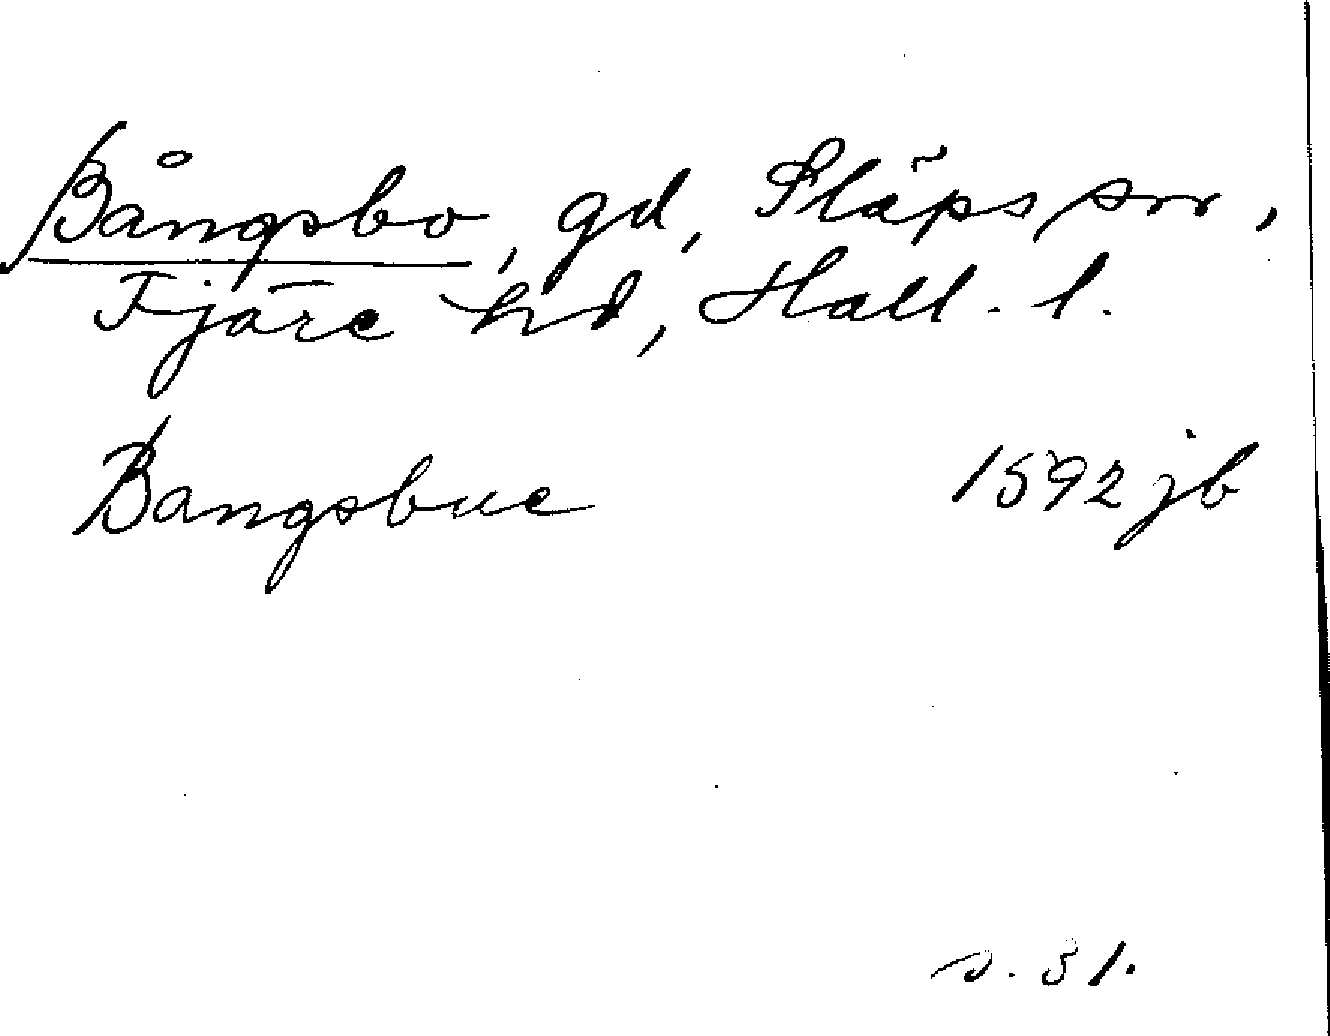 Bångsbo, gd, Släps sn,
Fjäre hd, Hall. l.
Bangsbue 1592 jb
s. 51.